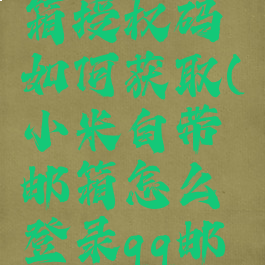 箱授权码
如何获取(
小米自带
邮箱怎么
登录qq邮